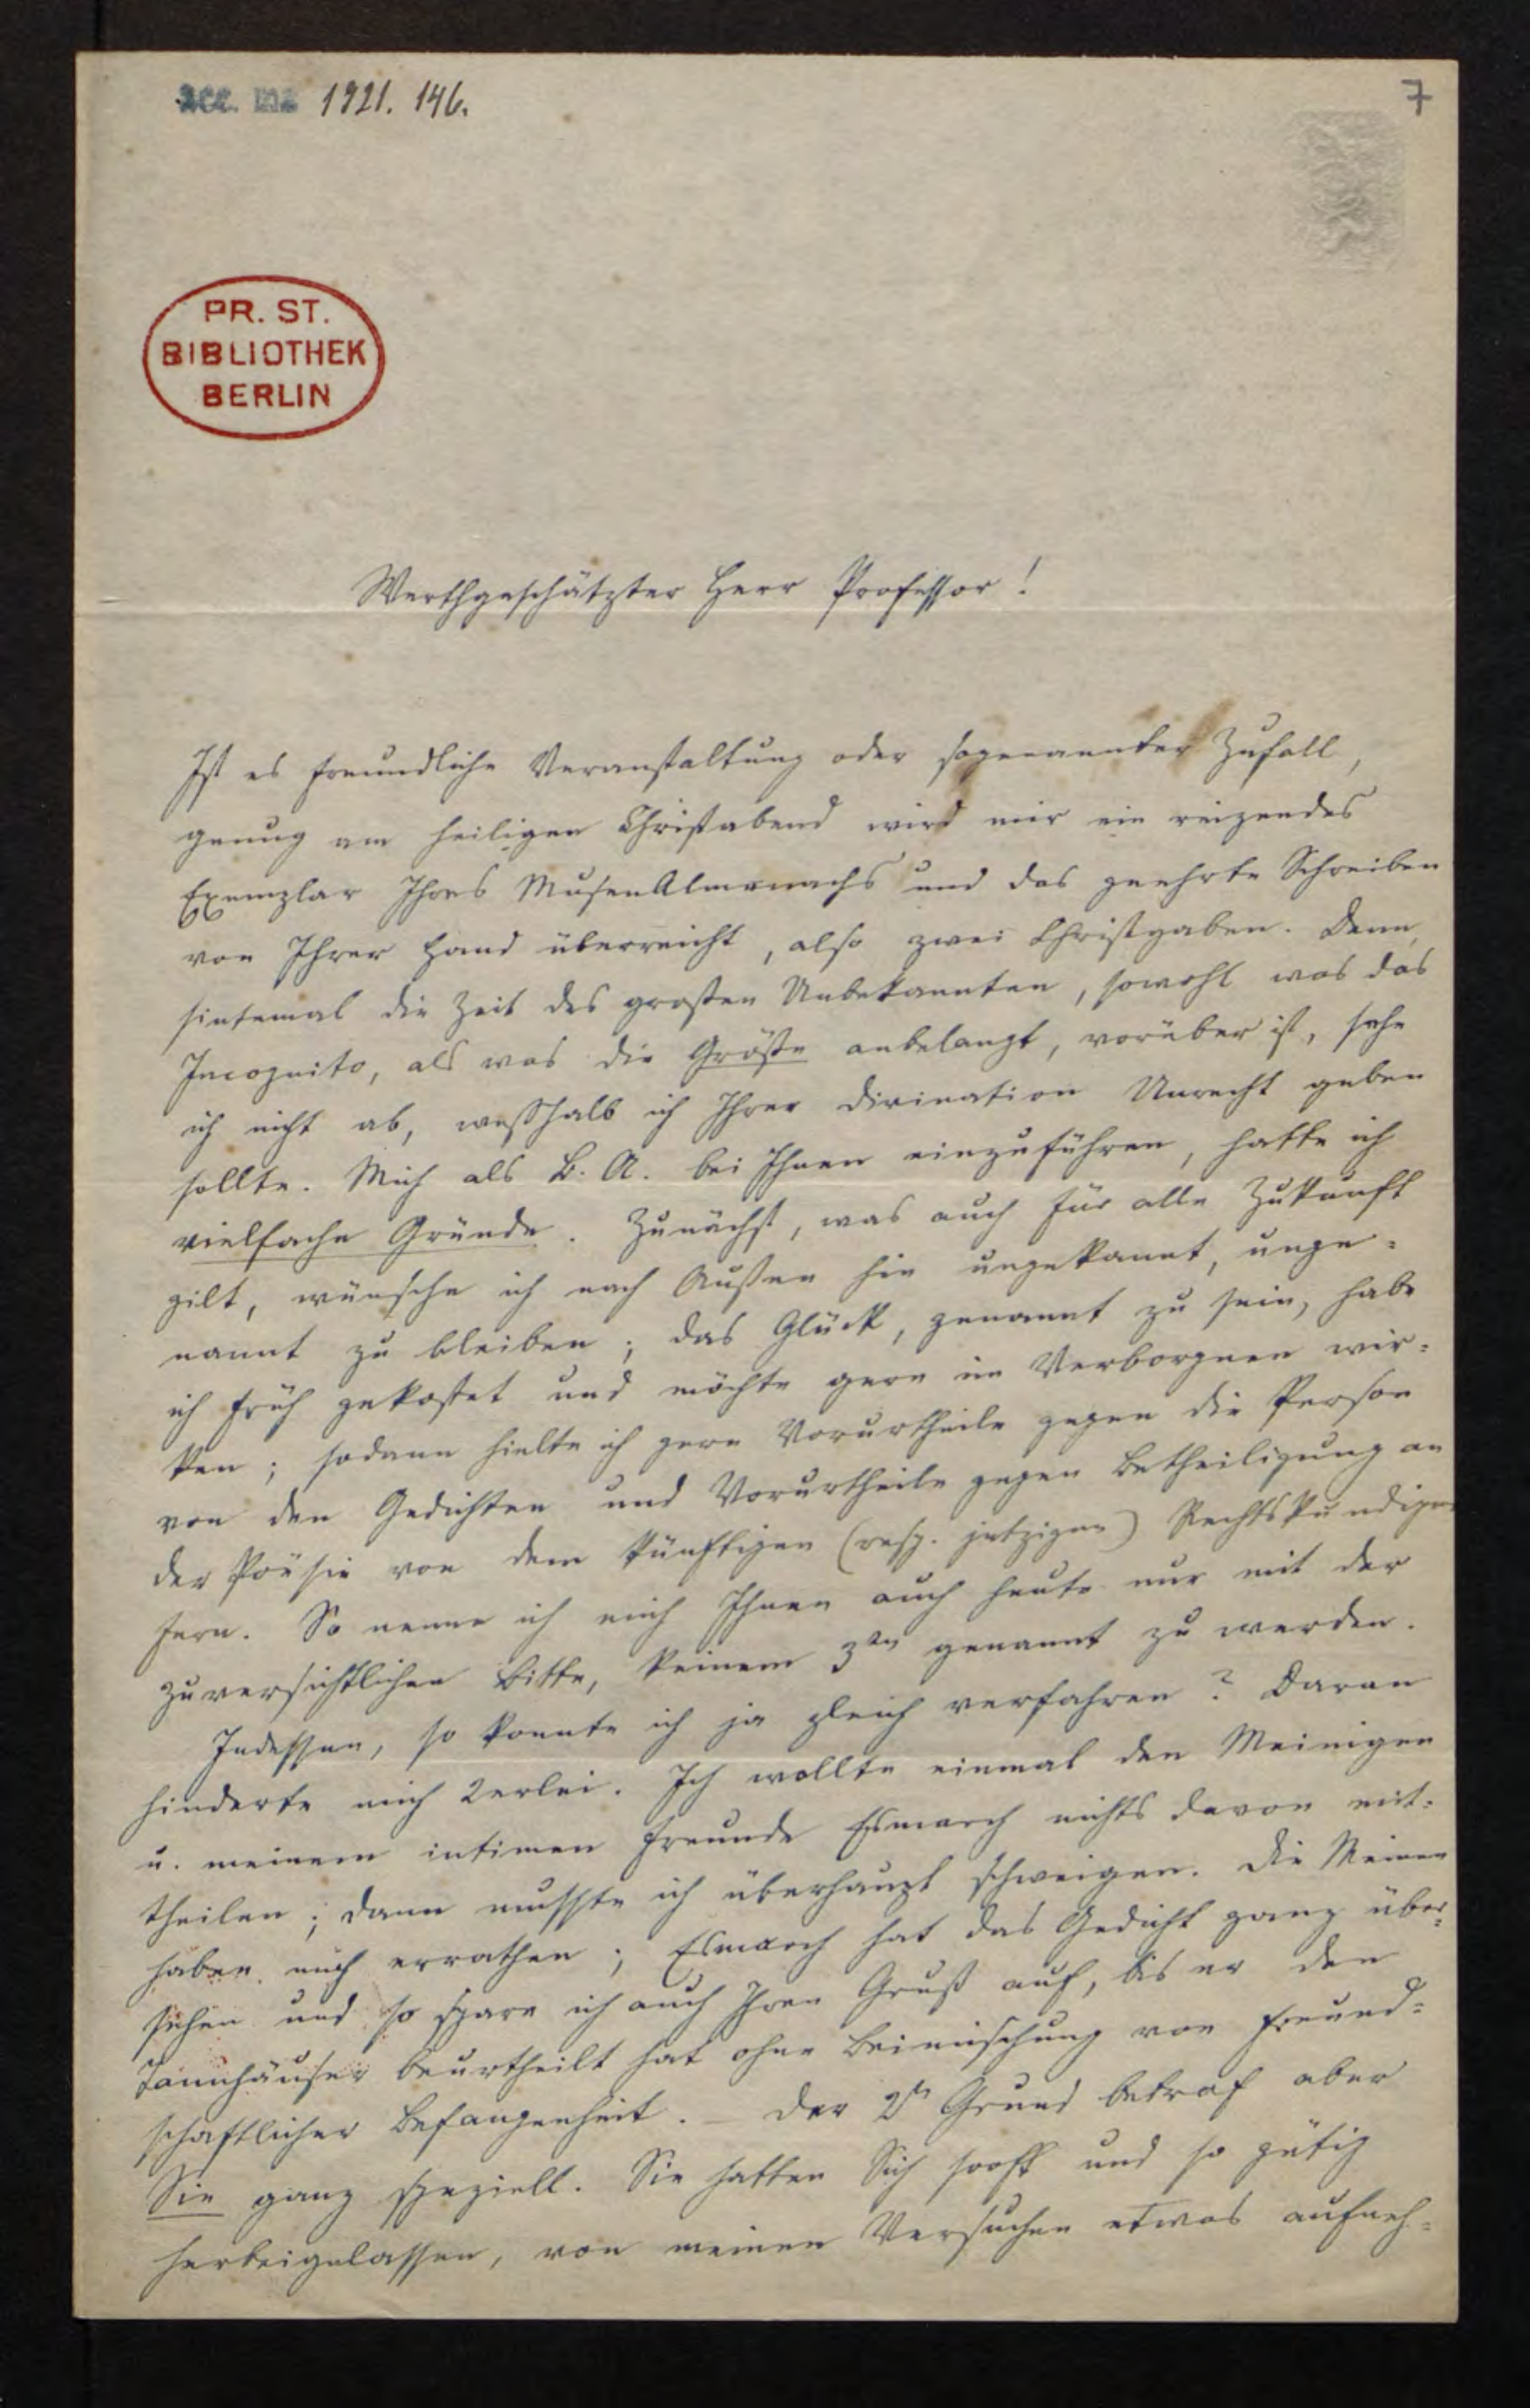 acc. ms. 1921. 146.
7
PR. ST.
BIBLIOTHEK
BERLIN
Werthgeschätzter Herr Professor!
Ist es freundliche Veranstaltung oder sogenannter Zufall,
genug am heiligen Christabend wird mir ein reizendes
Exemplar Ihres MusenAlmanachs und das geehrte Schreiben
von Ihrer Hand überreicht, also zwei Christgaben. Denn,
sintemal die Zeit des großen Unbekannten, sowohl was das
Incognito, als was die Größe anbelangt, vorüber ist, sehe
ich nicht ab, weßhalb ich Ihrer Divination Unrecht geben
sollte. Mich als B. A. bei Ihnen einzuführen, hatte ich
vielfache Gründe. Zunächst, was auch für alle Zukunft
gilt, wünsche ich nach Außen hin ungekannt, unge-
nannt zu bleiben; das Glück, genannt zu sein, habe
ich früh gekostet und möchte gern im Verborgnen wir-
ken; sodann hielte ich gern Vorurtheile gegen die Person
von den Gedichten und Vorurtheile gegen Betheiligung an
der Poësie von dem künftigen (resp. jetzigen) Rechtskundigen
fern. So nenne ich mich Ihnen auch heute nur mit der
zuversichtlichen Bitte, keinem 3ten genannt zu werden.
Indessen, so konnte ich ja gleich verfahren? Daran
hinderte mich 2erlei. Ich wollte einmal den Meinigen
u. meinem intimen Freunde Esmarch nichts davon mit-
theilen; dann musste ich überhaupt schweigen. Die Meinen
haben mich errathen; Esmarch hat das Gedicht ganz über-
sehen und so spare ich auch Ihren Gruß auf, bis er den
Tannhäuser beurtheilt hat ohne Beimischung von freund-
schaftlicher Befangenheit. – Der 2te Grund betraf aber
Sie ganz speziell. Sie hatten Sich sooft und so gütig
herbeigelassen, von meinen Versuchen etwas aufneh-